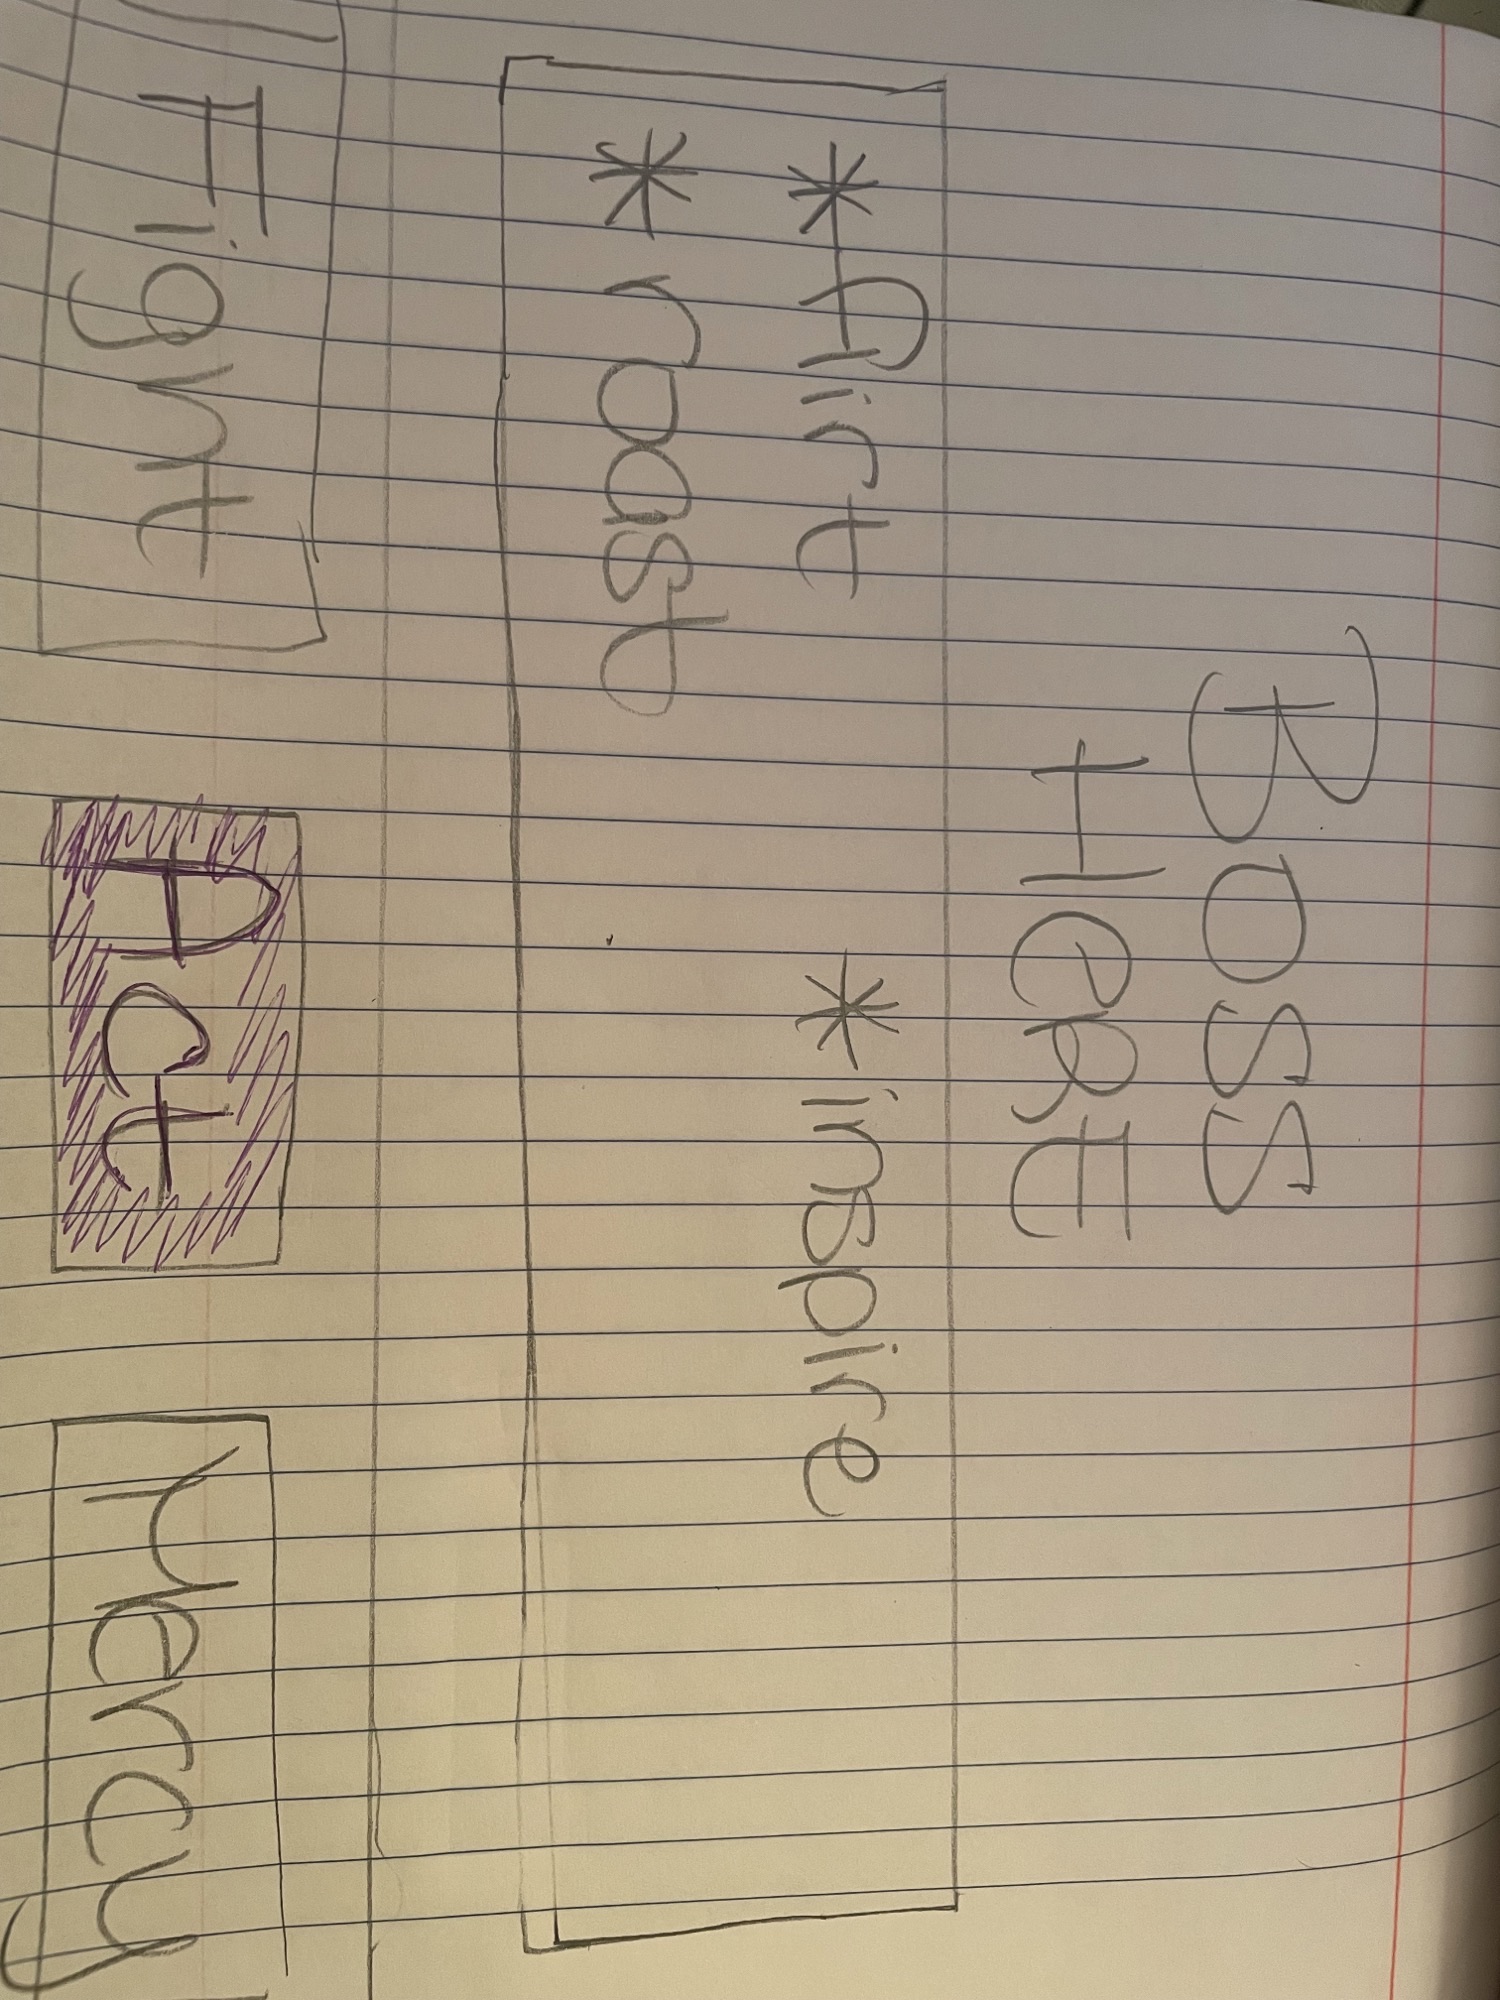 Boss
HeRE
* flirt * inspire
* roast
Fight Act Mercy